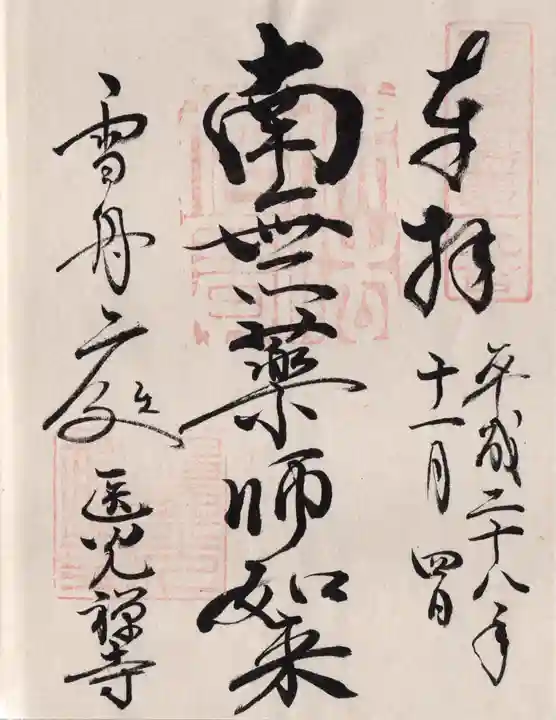 奉拝
平成二十八年
十一月四日
南無薬師如来
雪舟庭
医光禅寺